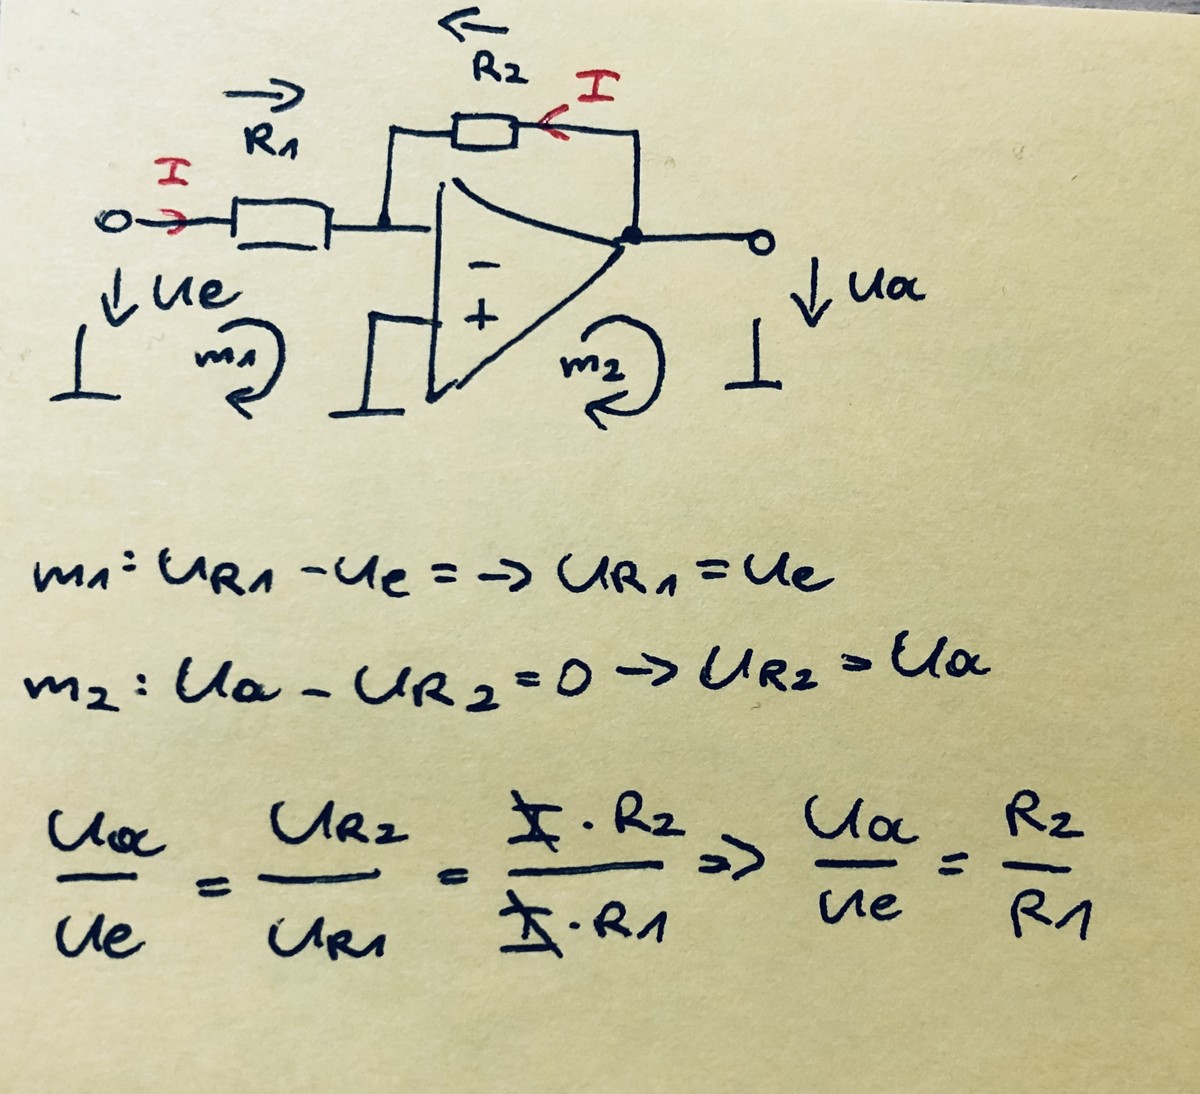 R2
I
R1
I
Ue
-
+
Ua
m1
m2
m1: UR1 - Ue = -> UR1 = Ue
m2: Ua - UR2 = 0 -> UR2 = Ua
Ua/Ue = UR2/UR1 = I · R2/I · R1 => Ua/Ue = R2/R1